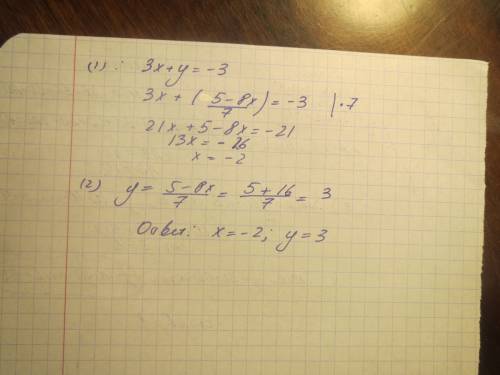 (1): 3x+y=-3
3x + (5-8x/7) = -3 |·7
21x+5-8x=-21
13x=-26
x=-2
(2) y = 5-8x/7 = 5+16/7 = 3
Ответ: x=-2; y=3